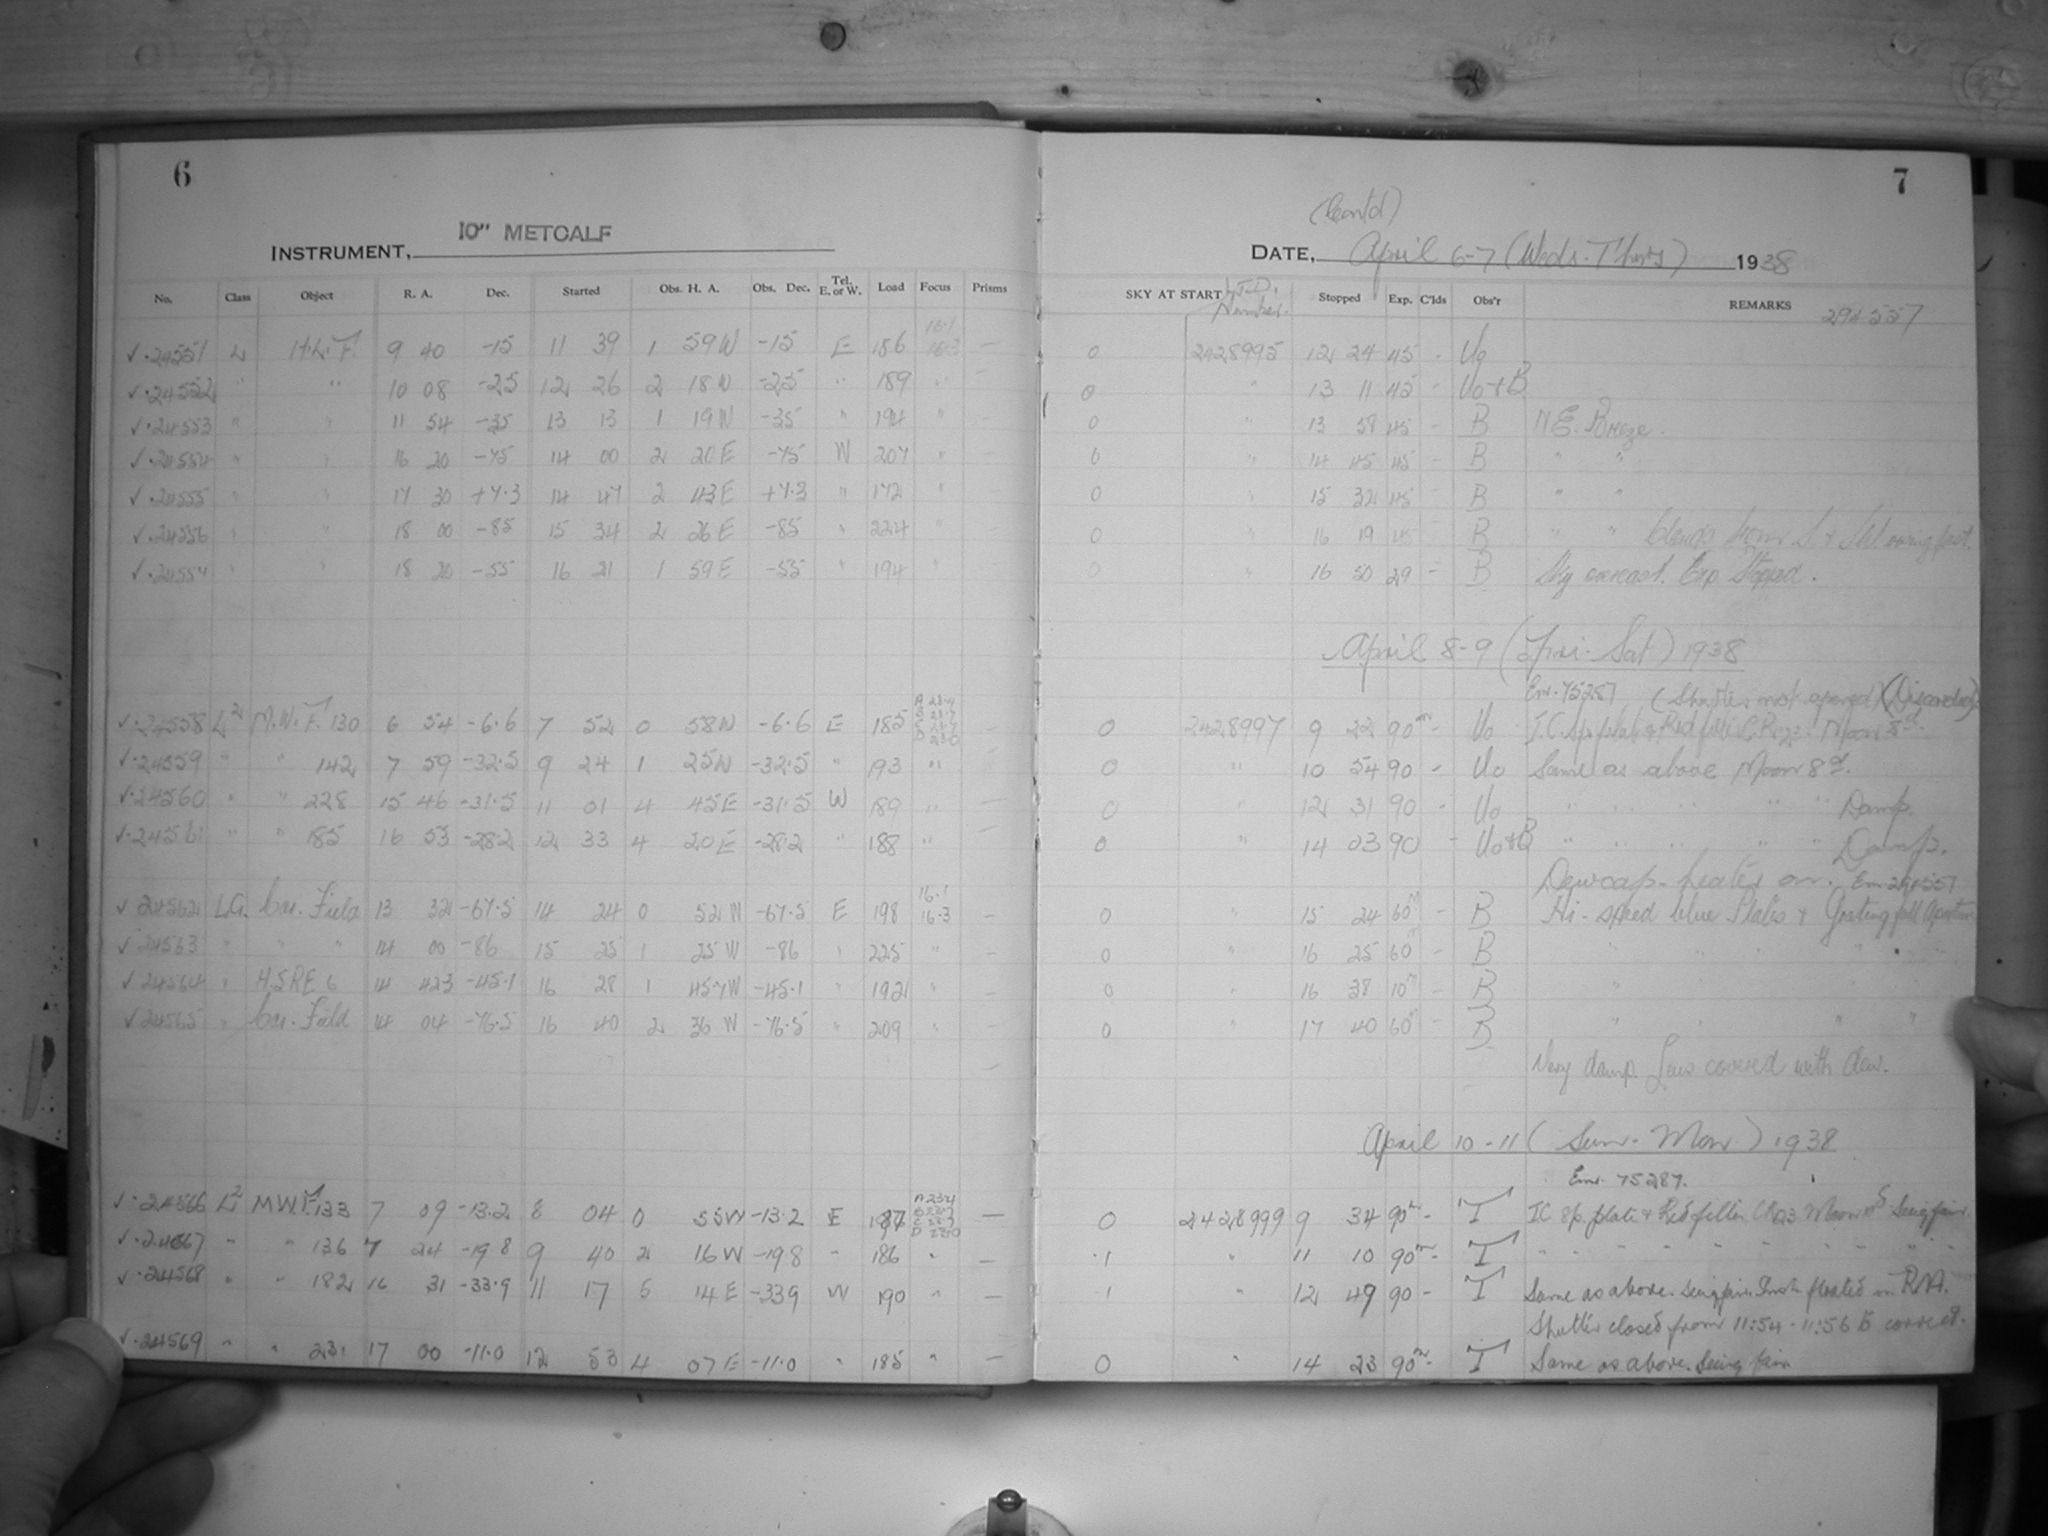 6
INSTRUMENT, 10" METCALF
No. Class Object R. A. Dec. Started Obs. H. A. Obs. Dec. Tel. E. or W. Load Focus Prisms
✓·24551 L H.L.F. 9 40 -15 11 39 1 59W -15 E 186 16·1 16·3 —
✓·24552 " " 10 08 -25 12 26 2 18W -25 " 189 " —
✓·24553 " " 11 54 -35 13 13 1 19W -35 " 194 " —
✓·24554 " " 16 20 -75 14 00 2 20E -75 W 207 " —
✓·24555 " " 17 30 +7·3 14 47 2 43E +7·3 " 172 "
✓·24556 " " 18 00 -85 15 34 2 26E -85 " 224 " —
✓·24557 " " 18 20 -55 16 21 1 59E -55 " 194 " —
✓·24558 L² M.W.F. 130 6 54 -6·6 7 52 0 58W -6·6 E 185 —
✓·24559 " " 142 7 59 -32·5 9 24 1 25W -32·5 " 193 " —
✓·24560 " " 228 15 46 -31·5 11 01 4 45E -31·5 W 189 " —
✓·24561 " " 185 16 53 -28·2 12 33 4 20E -28·2 " 188 " —
✓ 24562 LG. Car. Field 13 32 -67·5 14 24 0 52W -67·5 E 198 16·1 16·3 —
✓·24563 " " " 14 00 -86 15 25 1 25W -86 " 225 " —
✓·24564 " H.S.RE 6 14 423 -45·1 16 28 1 45·7W -45·1 " 192 " —
✓ 24565 " Car. Field 14 04 -76·5 16 40 2 36W -76·5 " 209 " —
✓·24566 L² M.W.F. 133 7 09 -13·2 8 04 0 55W -13·2 E 187 —
✓·24567 " " 136 7 24 -19 8 9 40 2 16W -198 " 186 " —
✓·24568 " " 182 16 31 -33·9 11 17 5 14E -339 W 190 " —
✓·24569 " " 231 17 00 -11·0 12 53 4 07E -11·0 " 185 " —
7
(Contd)
DATE, April 6-7 (Weds-Thurs) 1938
SKY AT START J.D. Number. Stopped Exp. C'lds Obs'r REMARKS
294557
0 2428995 12 24 45 - Uo
0 " 13 11 45 - Uo+B
0 " 13 58 45 - B N E. Breeze.
0 " 14 45 45 - B " "
0 " 15 32 45 - B " "
0 " 16 19 45 - B " " Clouds from S & SW moving fast.
0 " 16 50 29 - B Sky overcast. Exp. Stopped.
April 8-9 (Fri-Sat) 1938
Em. 75287 (Shutter not opened) (Discarded)
0 2428997 9 22 90ᵐ - Uo I.C. Sp. plate & Red filter C.R.23. Moon
0 " 10 54 90 - Uo Same as above Moon 8ᵈ.
0 " 12 31 90 - Uo " " " " " Damp.
0 " 14 03 90 - Uo+B " " " " " Damp.
Dewcap-heater on. Em. 294557
0 " 15 24 60ᵐ - B Hi-speed blue Plates & Grating full Aperture
0 " 16 25 60ᵐ - B " " "
0 " 16 38 10ᵐ - B "
0 " 17 40 60ᵐ - B " " "
Very damp. Lens covered with dew.
April 10-11 (Sun-Mon) 1938
Em. 75287.
0 2428999 9 34 90ᵐ - T IC Sp. plate & Red filter CR23 Moon Seeing fair.
·1 " 11 10 90ᵐ - T " " " " " "
·1 " 12 49 90 - T Same as above. Seeing fair. Inst. floated in R.A.
Shutter closed from 11:54-11:56 to correct.
0 " 14 23 90ᵐ - T Same as above. Seeing fair